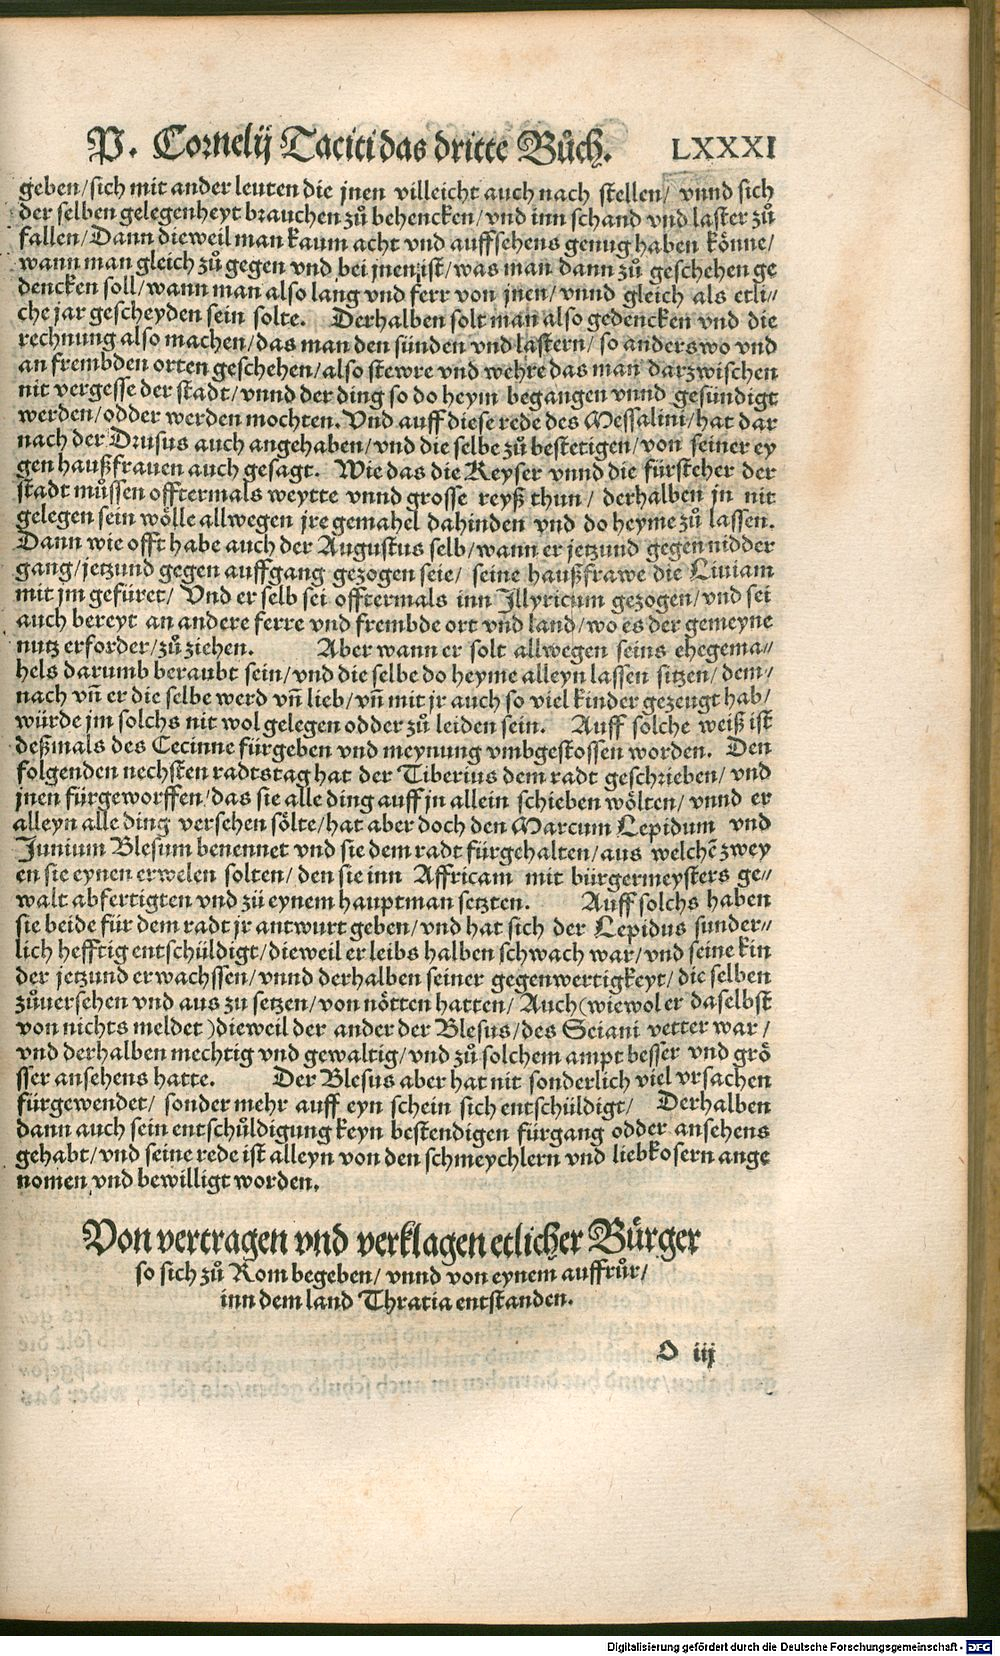 P. Cornelij Taciti das dritte Bůch. LXXXI
geben/sich mit ander leuten die jnen villeicht auch nach stellen/ vnnd sich
der selben gelegenheyt brauchen zů behencken/vnd inn schand vnd laster zů
fallen/Dann dieweil man kaum acht vnd auffsehens genug haben könne/
wann man gleich zů gegen vnd bei jnen ist/was man dann zů geschehen ge
dencken soll/wann man also lang vnd ferr von jnen/ vnnd gleich als etli⸗
che jar gescheyden sein solte. Derhalben solt man also gedencken vnd die
rechnung also machen/das man den sünden vnd lastern/ so anderswo vnd
an frembden orten geschehen/also stewre vnd wehre das man darzwischen
nit vergesse der stadt/vnnd der ding so do heym begangen vnnd gesündigt
werden/odder werden mochten. Vnd auff diese rede des Messalini/hat dar
nach der Drusus auch angehaben/vnd die selbe zů bestetigen/von seiner ey
gen haußfrauen auch gesagt. Wie das die Keyser vnnd die fürsteher der
stadt můssen offtermals weytte vnnd grosse reyß thun/ derhalben jn nit
gelegen sein wölle allwegen jre gemahel dahinden vnd do heyme zů lassen.
Dann wie offt habe auch der Augustus selb/wann er jetzund gegen nidder
gang/jetzund gegen auffgang gezogen seie/ seine haußfrawe die Liuiam
mit jm gefüret/ Vnd er selb sei offtermals inn Jllyricum gezogen/vnd sei
auch bereyt an andere ferre vnd frembde ort vnd land/wo es der gemeyne
nutz erforder/zů ziehen. Aber wann er solt allwegen seins ehegema⸗
hels darumb beraubt sein/vnd die selbe do heyme alleyn lassen sitzen/dem⸗
nach vñ er die selbe werd vñ lieb/vñ mit jr auch so viel kinder gezeugt hab/
würde jm solchs nit wol gelegen odder zů leiden sein. Auff solche weiß ist
deßmals des Cecinne fürgeben vnd meynung vmbgestossen worden. Den
folgenden nechsten radtstag hat der Tiberius dem radt geschrieben/ vnd
jnen fürgeworffen/das sie alle ding auff jn allein schieben wölten/ vnnd er
alleyn alle ding versehen sölte/hat aber doch den Marcum Lepidum vnd
Junium Blesum benennet vnd sie dem radt fürgehalten/aus welchẽ zwey
en sie eynen erwelen solten/den sie inn Affricam mit bürgermeysters ge⸗
walt abfertigten vnd zü eynem hauptman setzten. Auff solchs haben
sie beide für dem radt jr antwurt geben/vnd hat sich der Lepidus sunder⸗
lich hefftig entschüldigt/dieweil er leibs halben schwach war/vnd seine kin
der jetzund erwachssen/vnnd derhalben seiner gegenwertigkeyt/die selben
zůuersehen vnd aus zu setzen/von nötten hatten/ Auch (wiewol er daselbst
von nichts meldet )dieweil der ander der Blesus/des Seiani vetter war/
vnd derhalben mechtig vnd gewaltig/vnd zů solchem ampt besser vnd grö
sser ansehens hatte. Der Blesus aber hat nit sonderlich viel vrsachen
fürgewendet/ sonder mehr auff eyn schein sich entschüldigt/ Derhalben
dann auch sein entschůldigung keyn bestendigen fürgang odder ansehens
gehabt/vnd seine rede ist alleyn von den schmeychlern vnd liebkosern ange
nomen vnd bewilligt worden.
Von vertragen vnd verklagen etlicher Bürger
so sich zů Rom begeben/ vnnd von eynem auffrůr/
inn dem land Thratia entstanden.
O iij
Digitalisierung gefördert durch die Deutsche Forschungsgemeinschaft - DFG